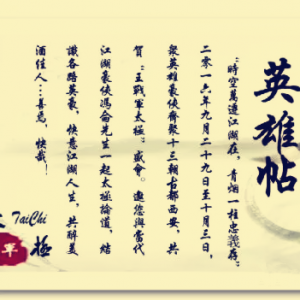 英雄帖
“時空萬遷江湖在，青煙一柱忠義存；
二零一六年九月二十九日至十月三日，
眾英雄豪俠齊聚十三朝古都西安，共
賀“王戰軍太極”盛會。邀您與當代
江湖豪俠馮侖先生一起太極論道，結
識各路英豪，快意江湖人生，共醉美
酒佳人…善焉，快哉！
TaiChi
軍
極